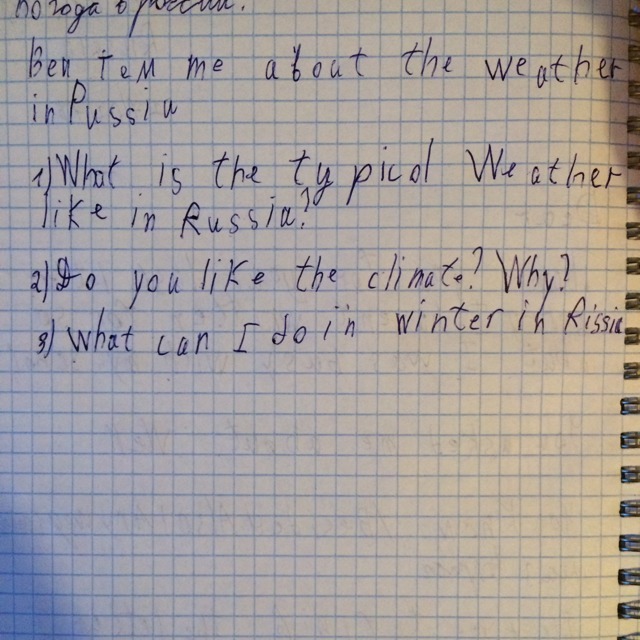 погода в россии.
Ben tell me about the weather
in Russia
1) What is the typical Weather
like in Russia?
2) Do you like the climate? Why?
3) What can I do in winter in Rissia